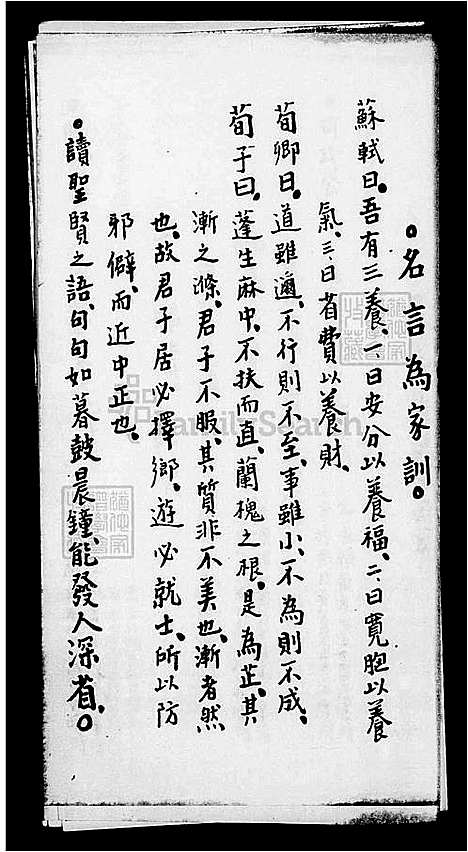 。名言為家訓。
蘇軾曰。吾有三養、一、曰安分以養福、二、曰寬胞以養
氣、三、曰省費以養財、
荀卿曰。道雖邇、不行則不至、事雖小、不為則不成、
荀子曰。蓬生麻中、不扶而直、蘭槐之根、是為芷、其
漸之滫、君子不服、其質非不美也、漸者然
也、故君子居必擇鄉、遊必就士、所以防
邪僻、而近中正也、
。讀聖賢之語、句句如暮鼓晨鐘、能發人深省。
FamilySearch